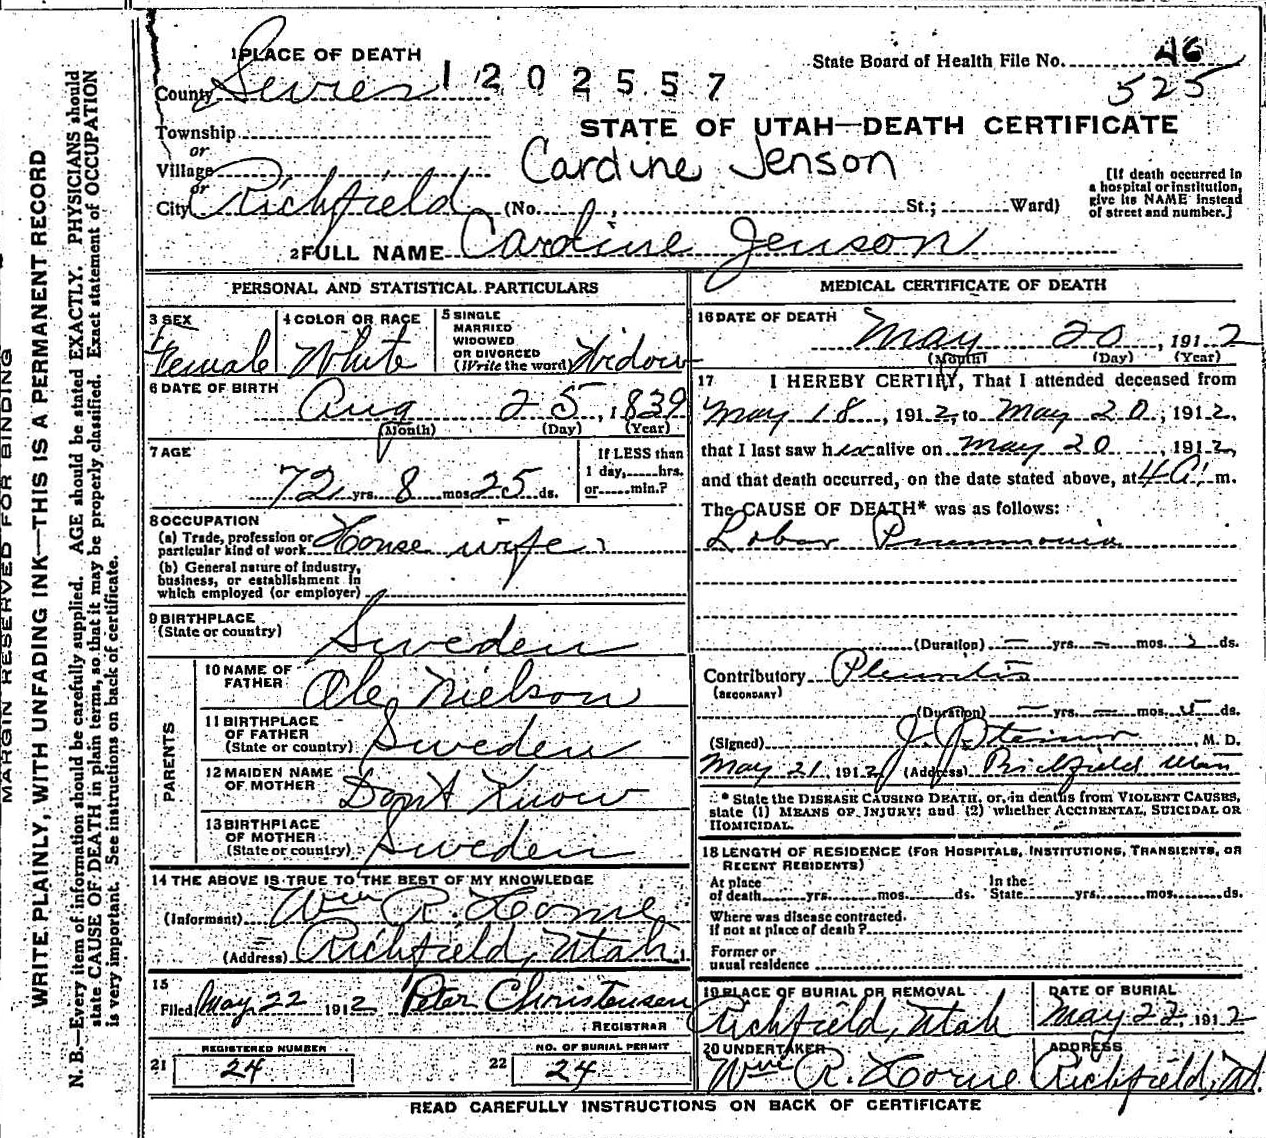 MARGIN RESERVED FOR BINDING
WRITE PLAINLY, WITH UNFADING INK—THIS IS A PERMANENT RECORD
N. B.—Every item of information should be carefully supplied. AGE should be stated EXACTLY. PHYSICIANS should
state CAUSE OF DEATH in plain terms, so that it may be properly classified. Exact statement of OCCUPATION
is very important. See instructions on back of certificate.
1 PLACE OF DEATH
State Board of Health File No. 46
525
County Sevier 1202557
Township
STATE OF UTAH—DEATH CERTIFICATE
or
Village
Cardine Jenson
or
City Richfield (No. , St.; Ward)
[If death occurred in
a hospital or institution,
give its NAME instead
of street and number.]
2 FULL NAME Cardine Jenson
PERSONAL AND STATISTICAL PARTICULARS
3 SEX
Female
4 COLOR OR RACE
White
5 SINGLE
MARRIED
WIDOWED
OR DIVORCED
(Write the word) Widow
6 DATE OF BIRTH
Aug 25, 1839
(Month) (Day) (Year)
7 AGE
72 yrs. 8 mos. 25 ds.
If LESS than
1 day, hrs.
or min.?
8 OCCUPATION
(a) Trade, profession or
particular kind of work House wife
(b) General nature of industry,
business, or establishment in
which employed (or employer)
9 BIRTHPLACE
(State or country) Sweden
PARENTS
10 NAME OF
FATHER Ole Nielson
11 BIRTHPLACE
OF FATHER
(State or country) Sweden
12 MAIDEN NAME
OF MOTHER Don't Know
13 BIRTHPLACE
OF MOTHER
(State or country) Sweden
14 THE ABOVE IS TRUE TO THE BEST OF MY KNOWLEDGE
(Informant) Wm R. Horne
(Address) Richfield, Utah
15
Filed May 22 1912 Peter Christensen
REGISTRAR
REGISTERED NUMBER
21 24
NO. OF BURIAL PERMIT
22 24
MEDICAL CERTIFICATE OF DEATH
16 DATE OF DEATH
May 20, 1912
(Month) (Day) (Year)
17 I HEREBY CERTIFY, That I attended deceased from
May 18, 1912, to May 20, 1912,
that I last saw her alive on May 20, 1912,
and that death occurred, on the date stated above, at 4 A. m.
The CAUSE OF DEATH* was as follows:
Lobar Pneumonia
(Duration) — yrs. — mos. ds.
Contributory Pleuritis
(SECONDARY)
(Duration) — yrs. — mos. 5 ds.
(Signed) J. J. Steiner, M. D.
May 21, 1912 (Address) Richfield Utah
* State the DISEASE CAUSING DEATH, or, in deaths from VIOLENT CAUSES,
state (1) MEANS OF INJURY; and (2) whether ACCIDENTAL, SUICIDAL OR
HOMICIDAL.
18 LENGTH OF RESIDENCE (FOR HOSPITALS, INSTITUTIONS, TRANSIENTS, OR
RECENT RESIDENTS)
At place
of death yrs. mos. ds.
In the
State yrs. mos. ds.
Where was disease contracted.
if not at place of death?
Former or
usual residence
19 PLACE OF BURIAL OR REMOVAL
Richfield, Utah
DATE OF BURIAL
May 22, 1912
20 UNDERTAKER
Wm R. Horne
ADDRESS
Richfield, Ut.
READ CAREFULLY INSTRUCTIONS ON BACK OF CERTIFICATE